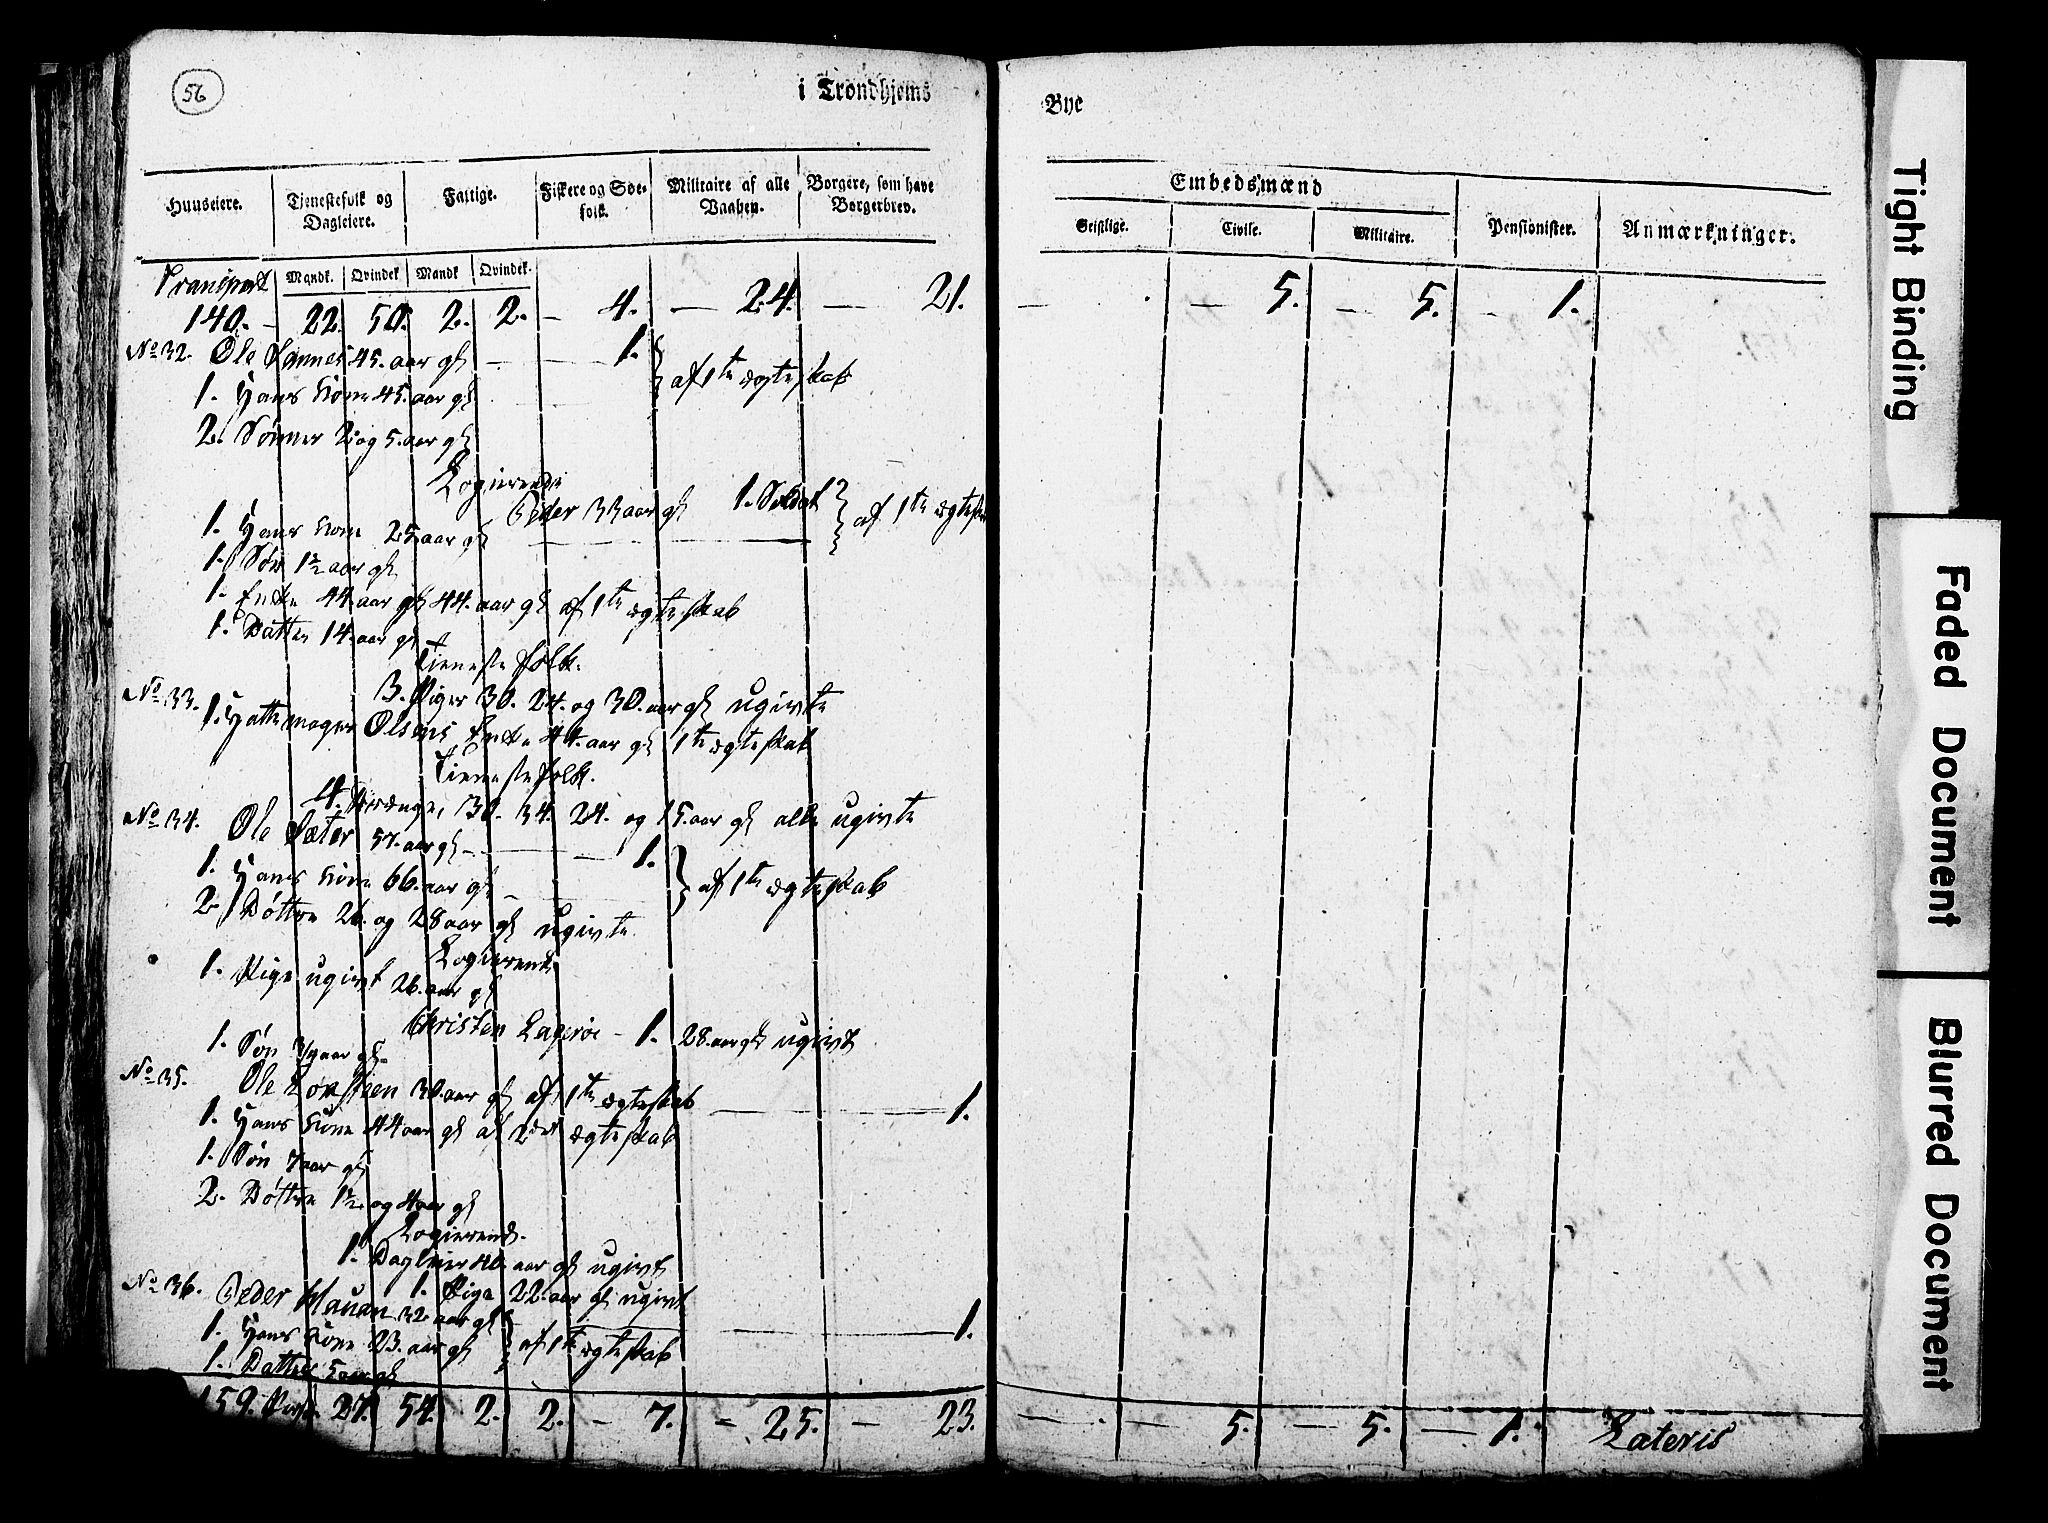 56
i Trondhjems Bye
Huuseiere. Tjenestefolk og Dagleiere. Fattige. Fiskere og Søe-folk. Militaire af alle Vaaben. Borgere, som have Borgerbrev.
Embedsmænd
Geistlige. Civile. Militaire. Pensionister. Anmærkninger.
Mandk. Qvindek Mandk Qvindek.
Transport
140. 22. 50. 2. 2. 4. 24. 21. 5. 5. 1.
No 32. Ole 45. aar gl 1.
1. Hans Kone 45. aar gl } af 1te ægteskab
2. Sønner 2 og 5. aar gl
Logierende
Peder 33 aar gl 1. Soldat
1. Hans Kone 25 aar gl } af 1te
1. Søn 1½ aar gl
1. Enke 44. aar gl 44. aar gl af 1te ægteskab
1. Datter 14. aar gl
Tieneste folk.
3. Piger 30. 24. og 30. aar gl ugivte
No 33. 1. Hattemager Olsens Enke 44. aar gl 1te ægteskab
Tieneste folk.
4. Drænge, 30. 34. 24. og 15. aar gl alle ugivte
No 34. Ole Sæter 57. aar gl 1.
1. Hans Kone 66. aar gl } af 1te ægteskab
2 Døttre 26. og 28 aar gl ugivte
Logierende
1. Pige ugivt 26. aar gl
Christen 1. 28. aar gl ugivt
1. Søn aar gl
No 35. Ole 30. aar gl af 1te ægteskab 1.
1. Hans Kone 44 aar gl af 2det ægteskab
1. Søn 7 aar gl
2. Døttre 1½ og 4 aar gl
Logierend.
1. Dagleier 40. aar gl ugivt
1. Pige 22. aar gl ugivt
No 36. Peder Hauan 32 aar gl 1.
1. Hans Kone 23. aar gl } af 1te ægteskab
1. Datter 5 aar gl
159. 27. 54. 2. 2. 7. 25. 23. 5. 5. 1. Lateris
Tight Binding
Faded Document
Blurred Document